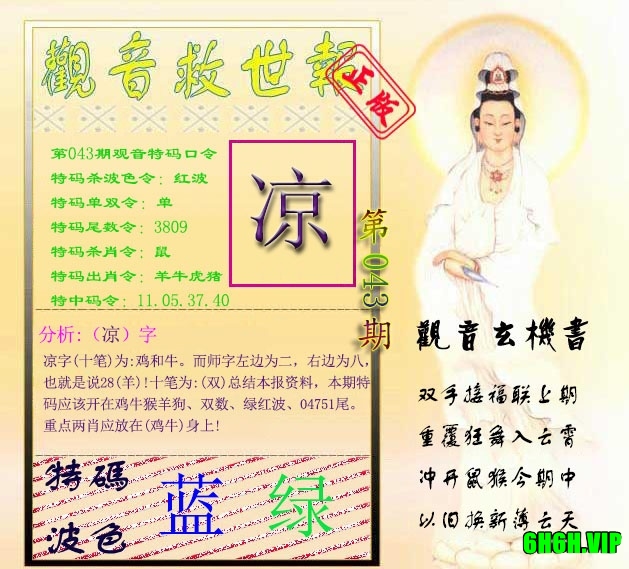 觀音救世報
正版
第043期观音特码口令
特码杀波色令：红波
特码单双令：单
特码尾数令：3809
特码杀肖令：鼠
特码出肖令：羊牛虎猪
特中码令：11.05.37.40
凉
第043期
分析:（凉）字
凉字(十笔)为:鸡和牛。而师字左边为二，右边为八，
也就是说28(羊)!十笔为:(双)总结本报资料，本期特
码应该开在鸡牛猴羊狗、双数、绿红波、04751尾。
重点两肖应放在(鸡牛)身上!
特碼
波色
蓝 绿
觀音玄機書
双手接福联上期
重覆狂舞入云霄
冲丹鼠猴今期中
以旧换新薄云天
6H6H.VIP